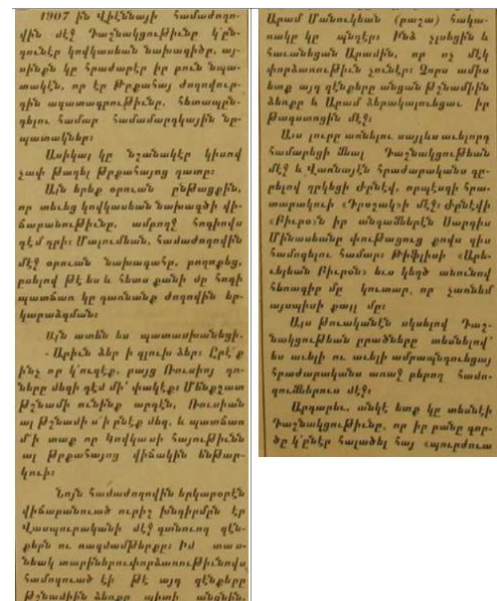 1907 ին Վիէննայի համաժողո-
վին մէջ Դաշնակցութիւնը կ՚ըն-
դունէր կովկասեան նախագիծը, այ-
սինքն կը հրաժարէր իր բուն նպա-
տակէն, որ էր Թրքահայ ժողովուր-
դին ազատագրութիւնը, հետապն-
դելու համար համամարդկային նը-
պատակներ։
Ասիկայ կը նշանակէր կիսով
չափ թաղել Թրքահայոց դատը։
Այն երեք օրուան ընթացքին,
որ տեւեց կովկասեան նախագծի վի-
ճաբանութիւնը, ամբողջ հոգիովս
դէմ դրի։ Մալումեան, համաժողովին
մէջ օրուան նախագահը, բողոքեց,
ըսելով թէ ես և հետս քանի մը հոգի
պատճառ կը դառնանք ժողովին եր-
կարաձգման։
Այն ատեն ես պատասխանեցի.
- Արիւն ձեր ի գլուխ ձեր։ Ըրէ՛ք
ինչ որ կ՚ուզէք, բայց Ռուսիոյ դռ-
ները մեզի դէմ մի՛ փակէք։ Մենք շատ
թշնամի ունինք արդէն, Ռուսիան
ալ թշնամի մ՚ի ընէք մեզ, և պատճառ
մ՚ի տաք որ Կովկասի հայութիւնն
ալ Թրքահայոց վիճակին ենթար-
կուի։
Նոյն համաժողովին երկարօրէն
վիճաբանուած ուրիշ խնդիրմըն էր
Վասպուրականի մէջ գտնուող զէն-
քերն ու ռազմամթերքը։ Իմ տաս-
նեակ տարիներու փորձառութիւնովս
համոզուած էի թէ այդ զէնքերը
թշնամիին ձեռքը պիտի անցնին.
Արամ Մանուկեան (բաշա) հակա-
ռակը կը պնդէր։ Ինձ չլսեցին և
հաւանեցան Արամին, որ ոչ մէկ
փորձառութիւն չունէր։ Չորս ամիս
ետք այդ զէնքերը անցան թշնամիին
ձեռքը և Արամ ձերբակալուեցաւ իր
թաքստոցին մէջ։
Այս լուրը առնելու սայլևս աւելորդ
համարեցի մնալ Դաշնակցութեան
մէջ և Վառնայէն հրաժարականս գը-
րելով ղրկեցի Ժընէվ, որպէսզի հրա-
տարակուի «Դրօշակ»ի մէջ։ Ժընէվի
«Բիւրօ»ն իր անդամներէն Սարգիս
Մինասեանը փութացուց քովս զիս
համոզելու համար։ Թիֆլիսի «Արե-
ւելեան Բիւրոն» եւս կեղծ անունով
հեռագիր մը կուտար, որ չառնեմ
այսպիսի քայլ մը։
Այս թուականէն սկսելով Դաշ-
նակցութեան ըրածները տեսնելով՝
ես աւելի ու աւելի ամրապնդուեցայ
հրաժարականս առաջ բերող համո-
զումներուս մէջ։
Արդարեւ, անկէ ետք կը տեսնէի
Դաշնակցութիւնը, որ իր բանը գոր-
ծը կ՚ընէր հալածել հայ «պուրժուա